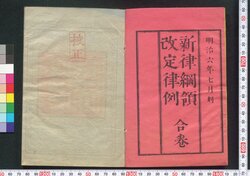 明治六年七月刻
新律綱領
改定律例
合卷